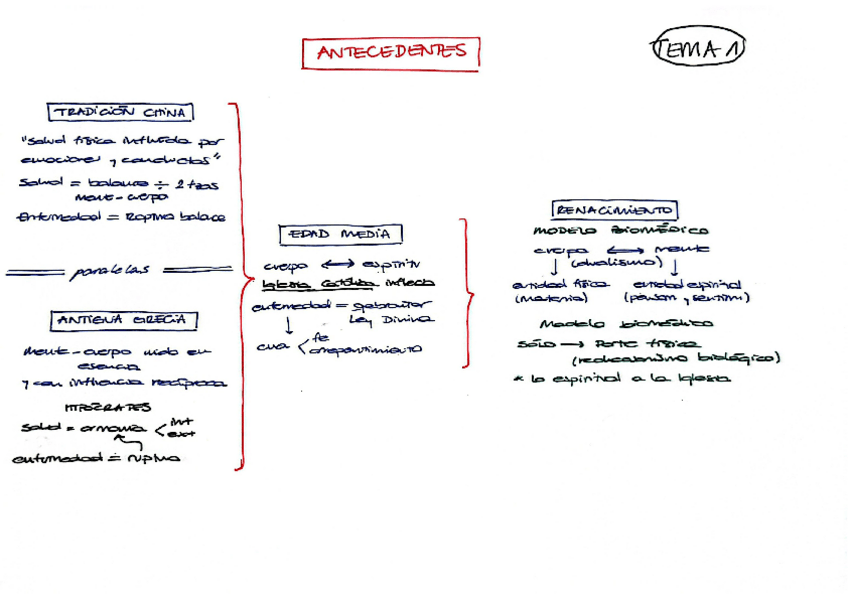 ANTECEDENTES
TEMA 1
TRADICIÓN CHINA
"Salud física influida por
emociones y conductas"
Salud = balance ÷ 2 fzas
mente-cuerpo
Enfermedad = Ruptura balace
paralelas
ANTIGUA GRECIA
Mente-cuerpo unido en
esencia
y con influencia recíproca
HIPÓCRATES
Salud = armonía < int
ext
enfermedad = ruptura
EDAD MEDIA
cuerpo ↔ espíritu
Iglesia Católica influencia
enfermedad = quebrantar
Ley Divina
cura < fe
arrepentimiento
RENACIMIENTO
MODELO BIOMÉDICO
cuerpo ↔ mente
(dualismo)
entidad física entidad espiritual
(materia) (pensam y sentimi)
Modelo biomédico
SÓLO → Parte física
(reduccionismo biológico)
* lo espiritual a la Iglesia